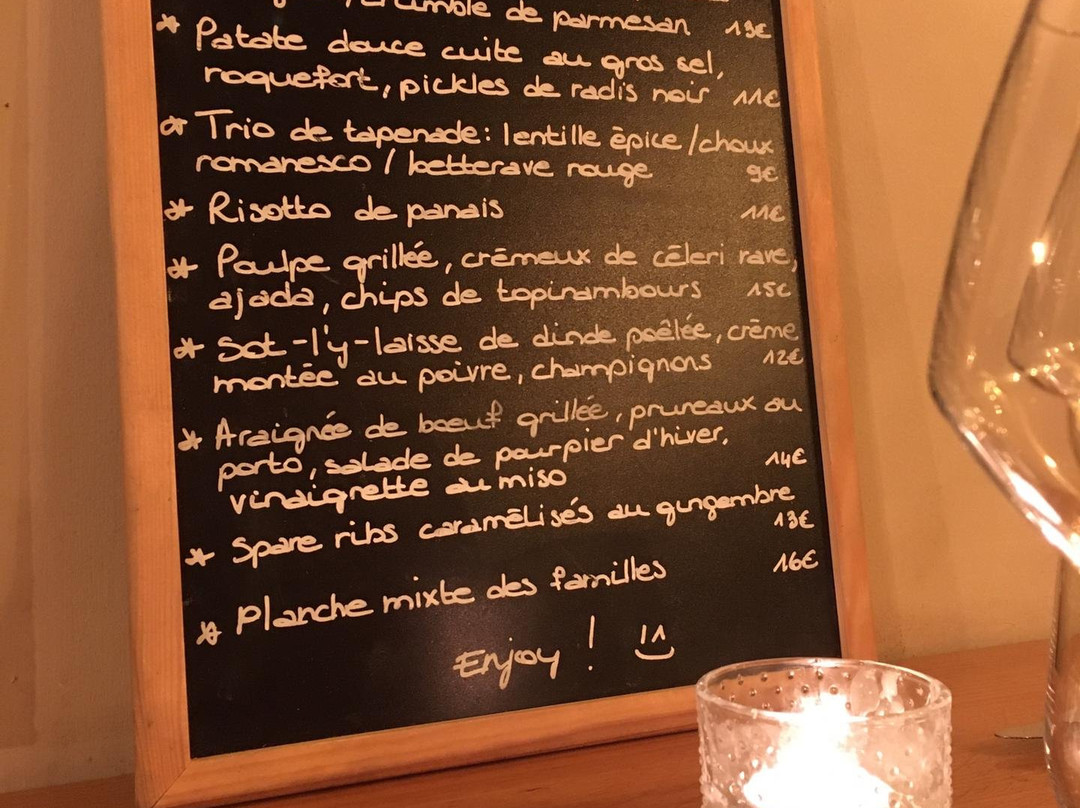 de parmesan 13€
* Patate douce cuite au gros sel,
roquefort, pickles de radis noir 11€
* Trio de tapenade: lentille épice /choux
romanesco / betterave rouge 9€
* Risotto de panais 11€
* Poulpe grillée, crémeux de céleri rave,
ajada, chips de topinambours 15€
* Sot-l'y-laisse de dinde poêlée, crème
montée au poivre, champignons 12€
* Araignée de boeuf grillée, pruneaux au
porto, salade de pourpier d'hiver,
vinaigrette au miso 14€
* Spare ribs caramélisés au gingembre
13€
* Planche mixte des familles 16€
Enjoy !